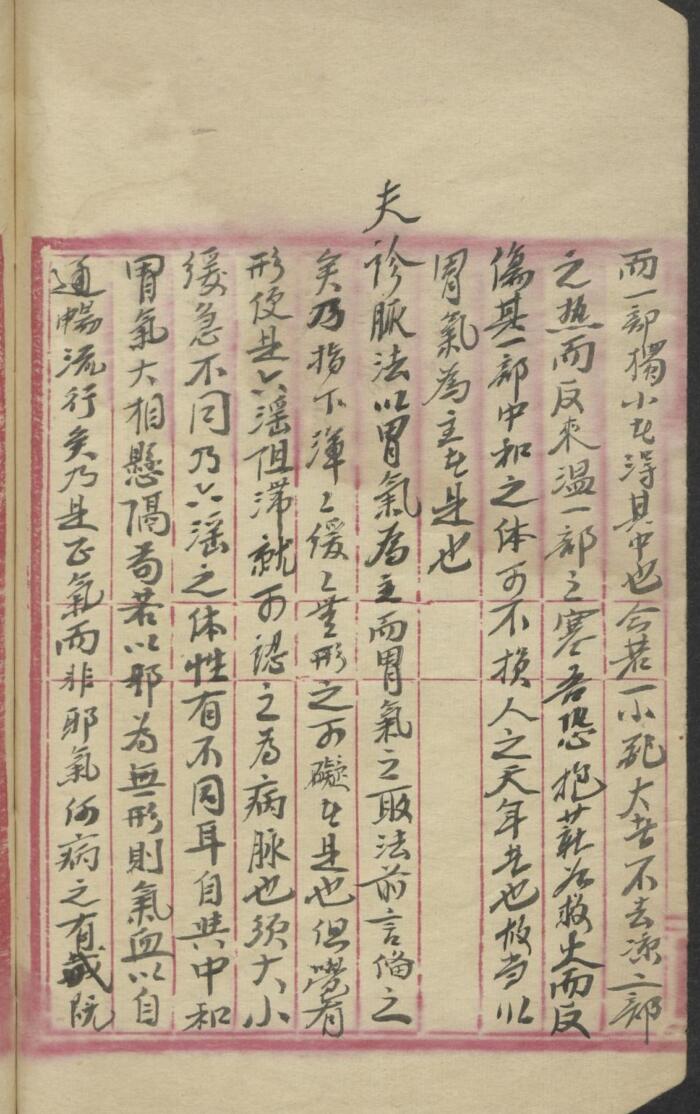 而一部獨小者得其中也今若一小配大者不去涼一部
之热而反來溫一部之寒吾恐抱薪為救火而反
傷其一部中和之体可不損人之天年者也故当以
胃氣為主者是也
夫診脈法以胃氣為主而胃氣之取法前言備之
矣乃指下渾〻緩〻無形之可礙者是也但覺有
形便是六滛阻滞就可認之為病脉也須大小
緩急不同乃六滛之体性有不同耳自與中和
胃氣大相懸隔苟若以邪為無形則氣血以自
通暢流行矣乃是正氣而非邪氣何病之有哉既